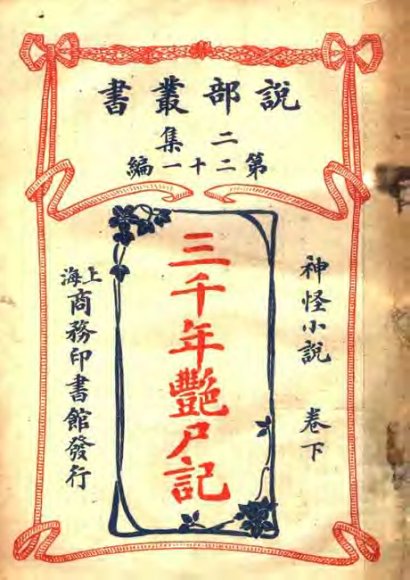 說部叢書
二集
第二十一編
神怪小說 卷下
三千年艷尸記
上海商務印書館發行